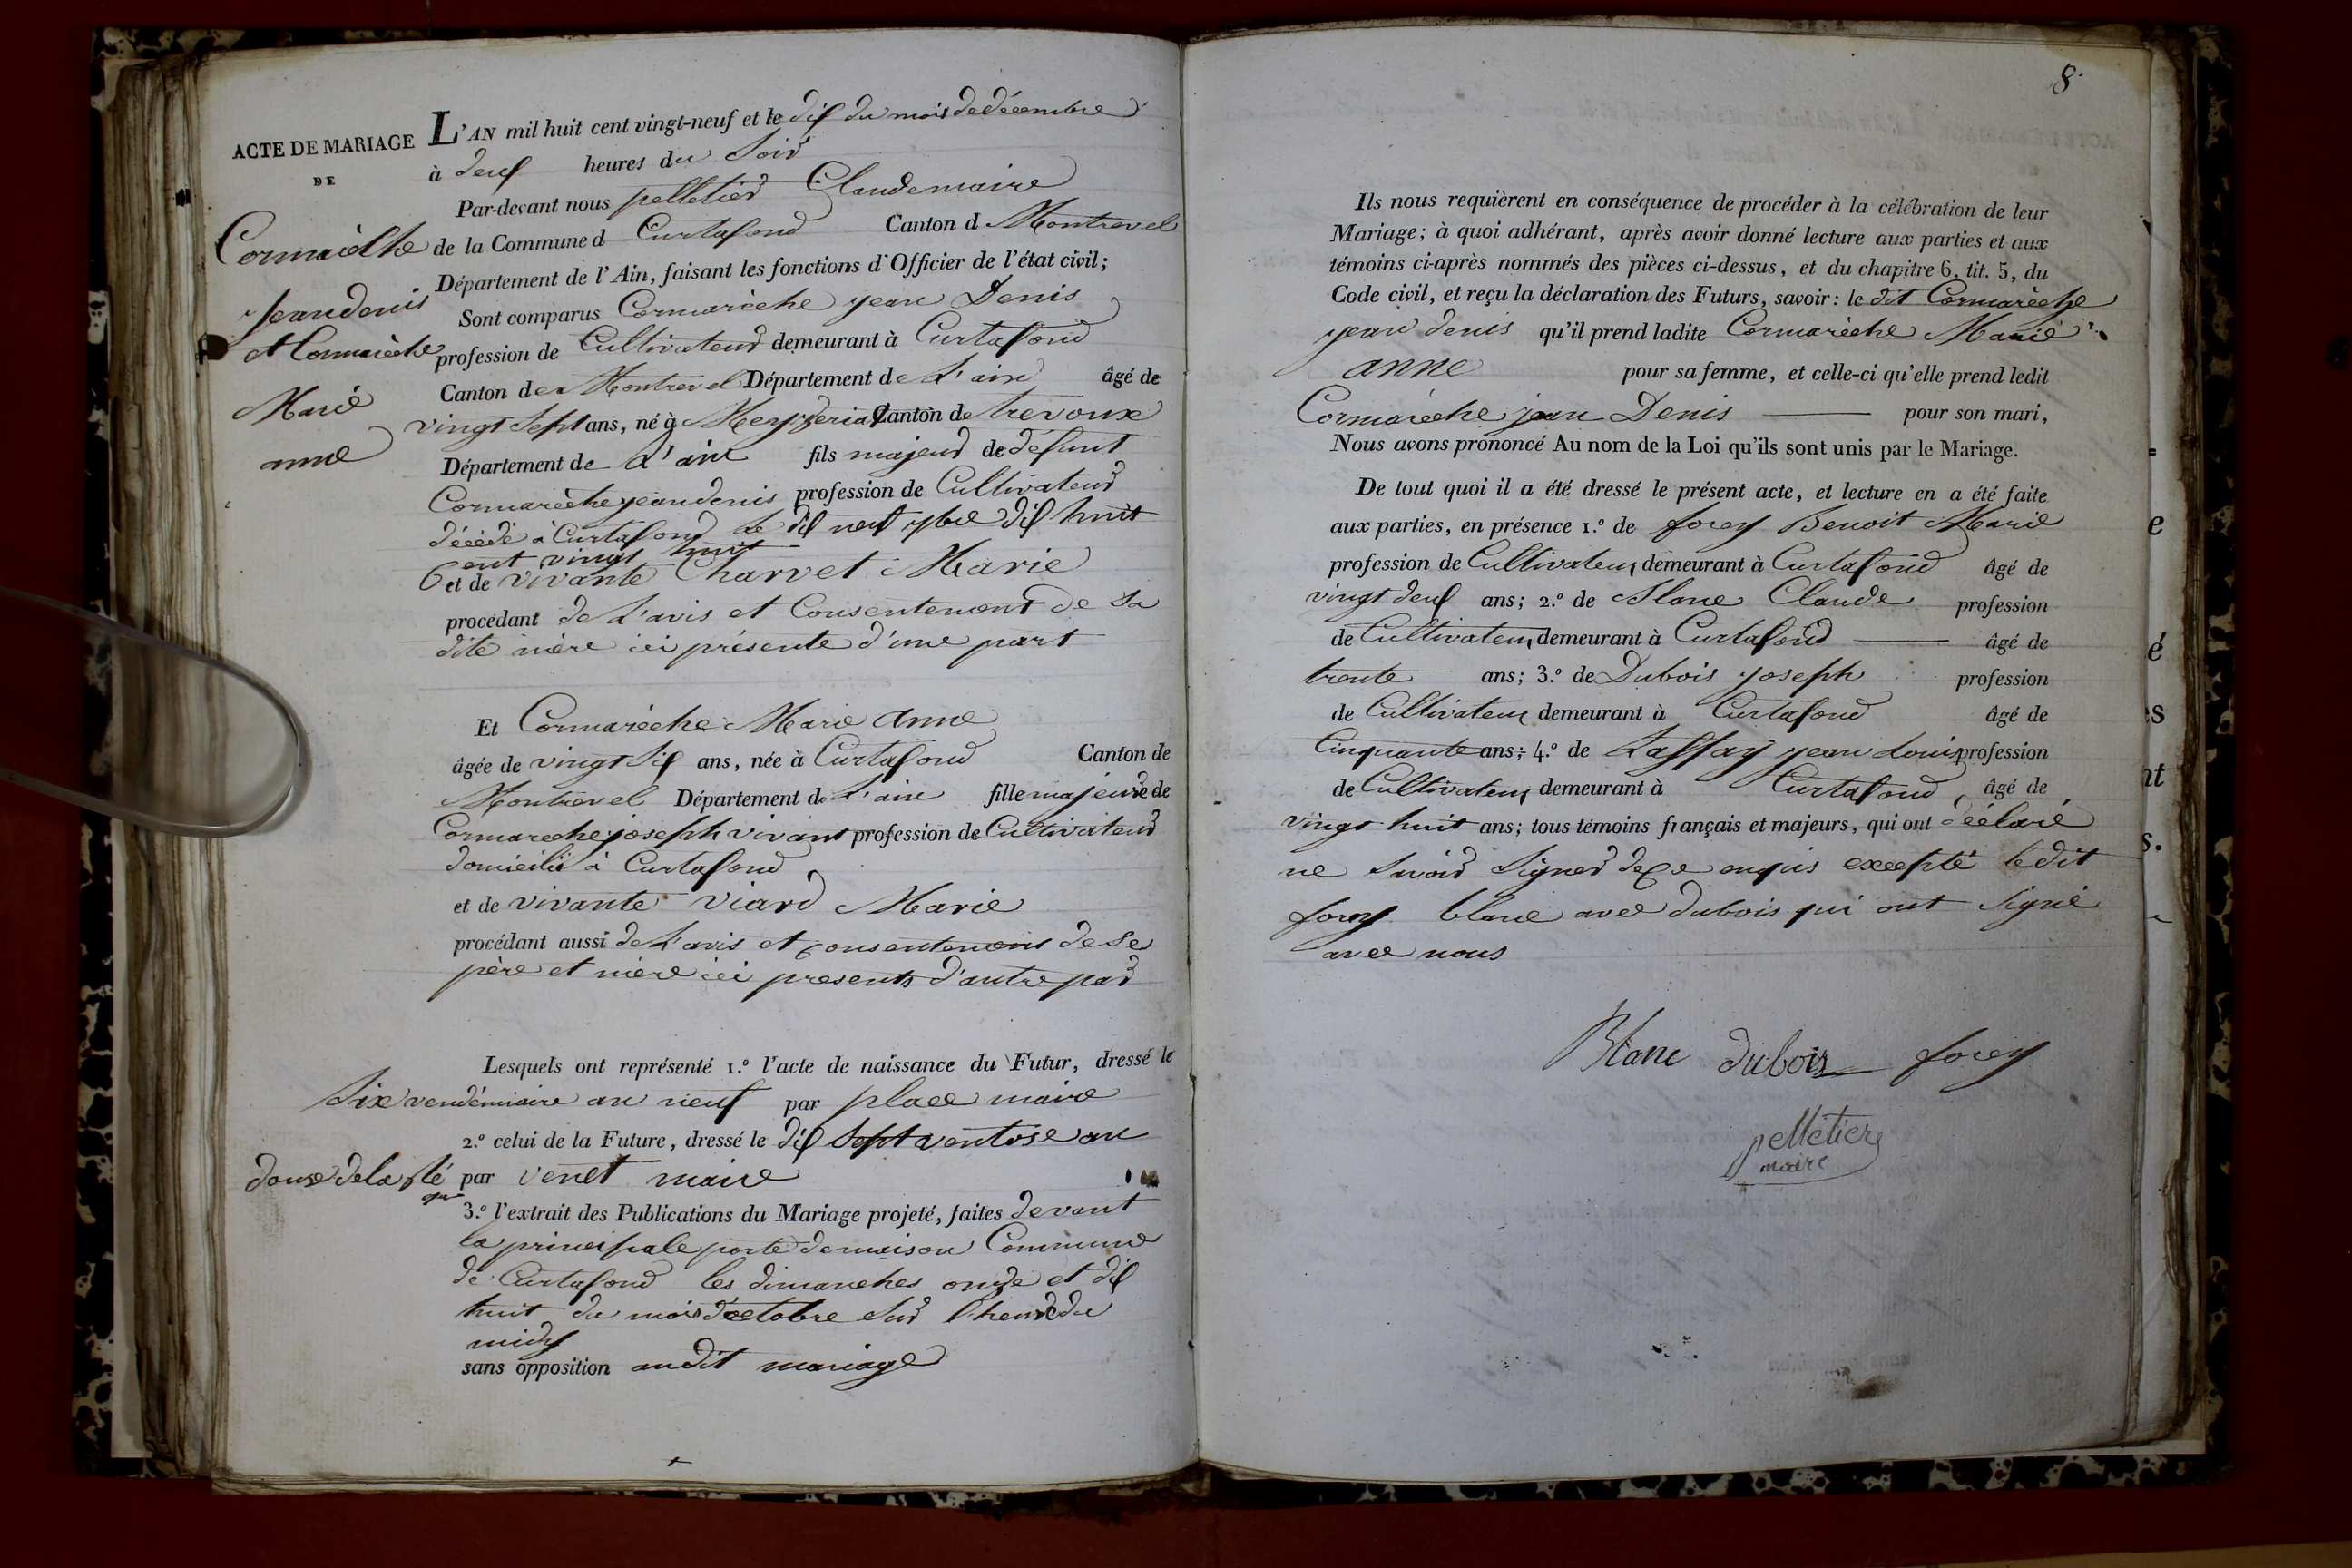 ACTE DE MARIAGE
DE
Cormarèche
Jean denis
et Cormarèche
Marie
anne
L'AN mil huit cent vingt-neuf et le dix du mois de décembre
à deux heures du Soir
Par-devant nous pelletier Claude maire
de la Commune d Curtafond Canton d Montrevel
Département de l'Ain, faisant les fonctions d'Officier de l'état civil;
Sont comparus Cormarèche jean Denis
profession de Cultivateur demeurant à Curtafond
Canton de Montrevel Département de L'ain âgé de
vingt Sept ans, né à Mezeriat Canton de trevoux
Département de L'ain fils majeur de défunt
Cormarèche jean denis profession de Cultivateur
décédé à Curtafond Le dix neuf dix huit
Cent vingt huit
et de vivante Charvet Marie
procédant de L'avis et Consentement de Sa
dite mère ici présente d'une part
Et Cormarèche Marie anne
âgée de vingt Six ans, née à Curtafond Canton de
Montrevel Département de L'ain fille majeure de
Cormareche joseph vivant profession de Cultivateur
domicilié à Curtafond
et de vivante viard Marie
procédant aussi de L'avis et consentement de Ses
père et mère ici presents d'autre par
Lesquels ont représenté 1.º l'acte de naissance du Futur, dressé le
Six vendémiaire an neuf par place maire
2.º celui de la Future, dressé le dix Sept ventose an
douze de la rép par venet maire
que
3.º l'extrait des Publications du Mariage projeté, faites devant
la principale porte de maison Commune
de Curtafond les dimanches onze et dix
huit du mois d'octobre Sur l'heure du
midy
sans opposition audit mariage
8
Ils nous requièrent en conséquence de procéder à la célébration de leur
Mariage; à quoi adhérant, après avoir donné lecture aux parties et aux
témoins ci-après nommés des pièces ci-dessus, et du chapitre 6, tit. 5, du
Code civil, et reçu la déclaration des Futurs, savoir: le dit Cormarèche
jean denis qu'il prend ladite Cormarèche Marie
anne pour sa femme, et celle-ci qu'elle prend ledit
Cormarèche jean Denis pour son mari,
Nous avons prononcé Au nom de la Loi qu'ils sont unis par le Mariage.
De tout quoi il a été dressé le présent acte, et lecture en a été faite
aux parties, en présence 1.º de forey Benoit Marie
profession de Cultivateur demeurant à Curtafond âgé de
vingt deux ans; 2.º de Blanc Claude profession
de Cultivateur demeurant à Curtafond âgé de
trente ans; 3.º de Dubois joseph profession
de Cultivateur demeurant à Curtafond âgé de
Cinquante ans; 4.º de Laffay jean Louis profession
de Cultivateur demeurant à Curtafond, âgé de
vingt huit ans; tous témoins français et majeurs, qui ont déclaré
ne Savoir Signer de ce enquis excepté le dit
forey blanc avec dubois qui ont Signé
avec nous
Blanc dubois forey
pelletier
maire